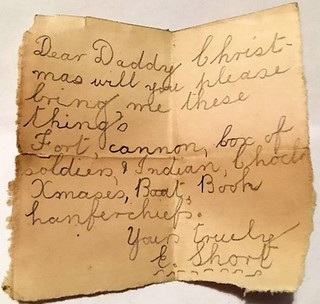 Dear Daddy Christ-
mas will you please
bring me these
thing's
Fort, cannon, box of
soldiers, & Indian, Choclt
Xmases, Boat, Book
hanferchiefs.
Yours truely
E. Short